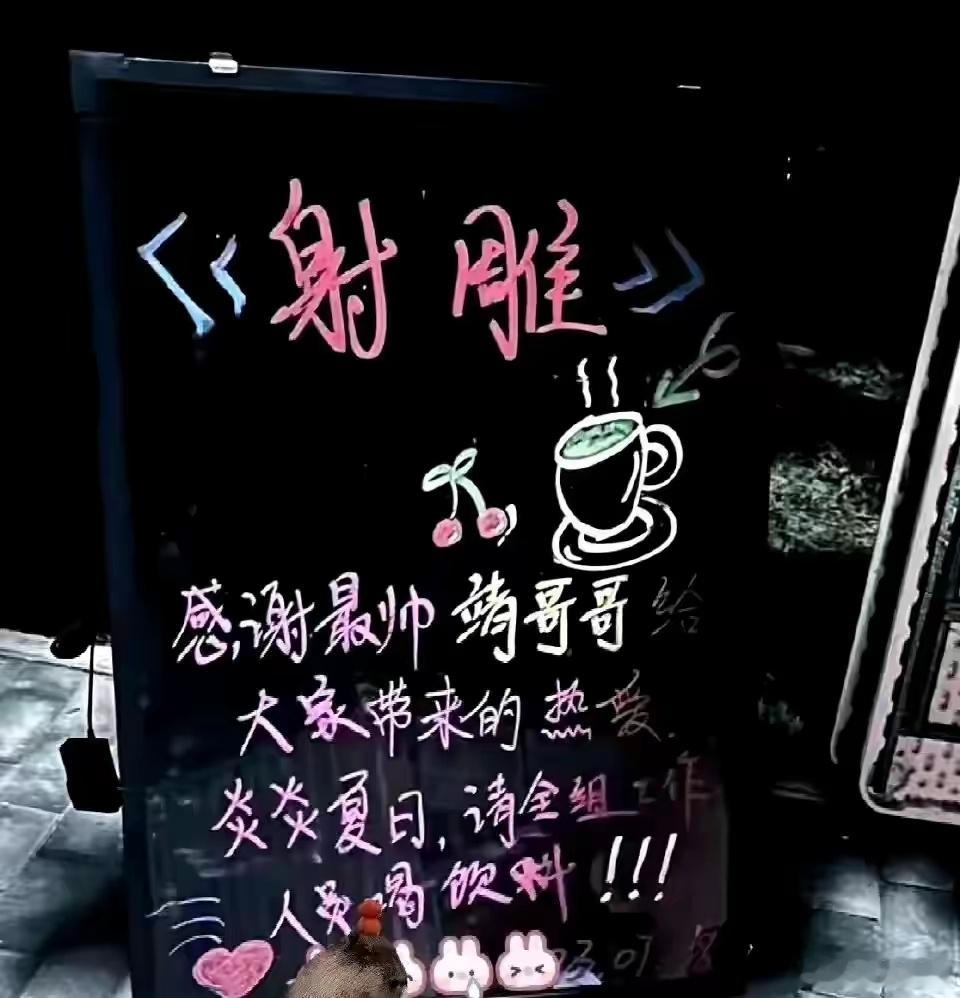 《射雕》
感谢最帅靖哥哥给
大家带来的热爱.
炎炎夏日,请全组工作
人员喝饮料!!!